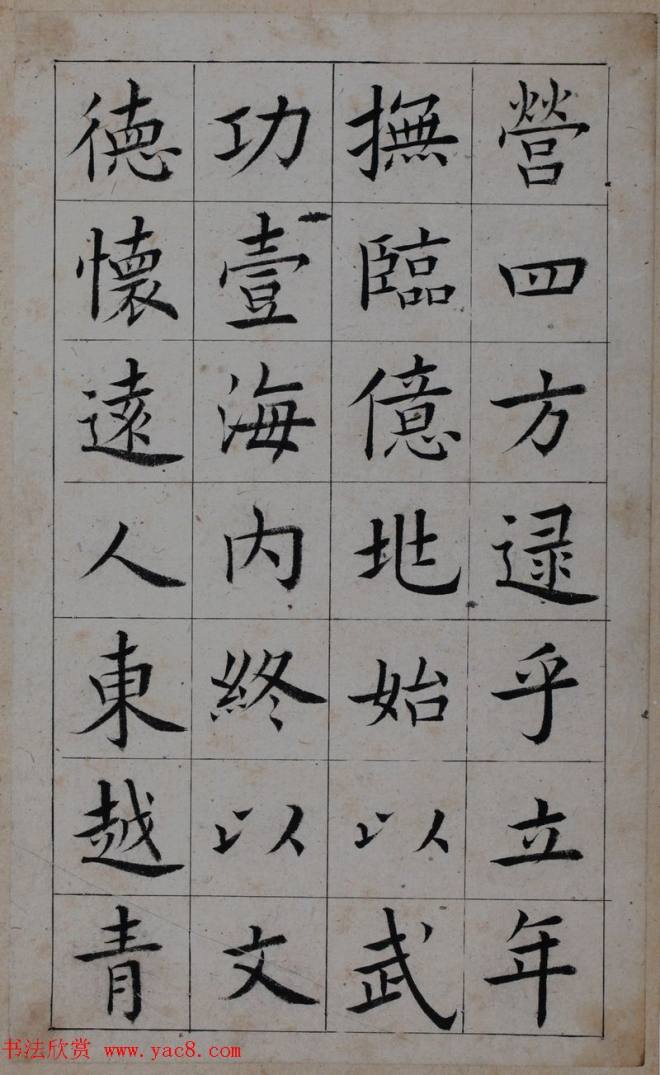 營四方逮乎立年
撫臨億兆始以武
功壹海内終以文
德懷遠人東越青
书法欣赏 www.yac8.com